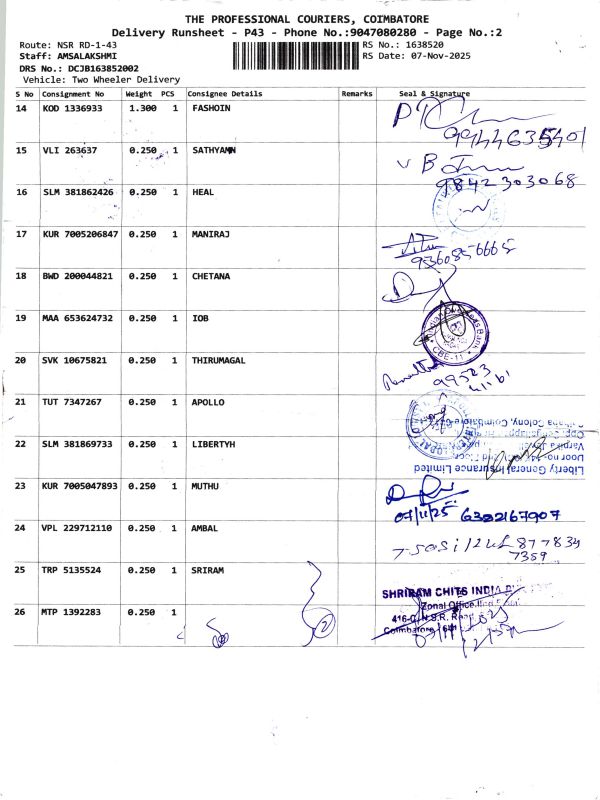 THE PROFESSIONAL COURIERS, COIMBATORE
Delivery Runsheet - P43 - Phone No.:9047080280 - Page No.:2
Route: NSR RD-1-43
RS No.: 1638520
Staff: AMSALAKSHMI
RS Date: 07-Nov-2025
DRS No.: DCJB163852002
Vehicle: Two Wheeler Delivery
S No Consignment No Weight PCS Consignee Details Remarks Seal & Signature
14 KOD 1336933 1.300 1 FASHOIN
9944635401
15 VLI 263637 0.250 1 SATHYAMN
9842303068
16 SLM 381862426 0.250 1 HEAL
17 KUR 7005206847 0.250 1 MANIRAJ
9360856665
18 BWD 200044821 0.250 1 CHETANA
19 MAA 653624732 0.250 1 IOB
CBE-11
20 SVK 10675821 0.250 1 THIRUMAGAL
99523
21 TUT 7347267 0.250 1 APOLLO
22 SLM 381869733 0.250 1 LIBERTYH
Liberty General Insurance Limited
23 KUR 7005047893 0.250 1 MUTHU
07/11/25 6382167907
24 VPL 229712110 0.250 1 AMBAL
877834
7359
25 TRP 5135524 0.250 1 SRIRAM
SHRIRAM CHITS INDIA
Zonal Office
26 MTP 1392283 0.250 1
416-C, N.S.R. Road
Coimbatore
2